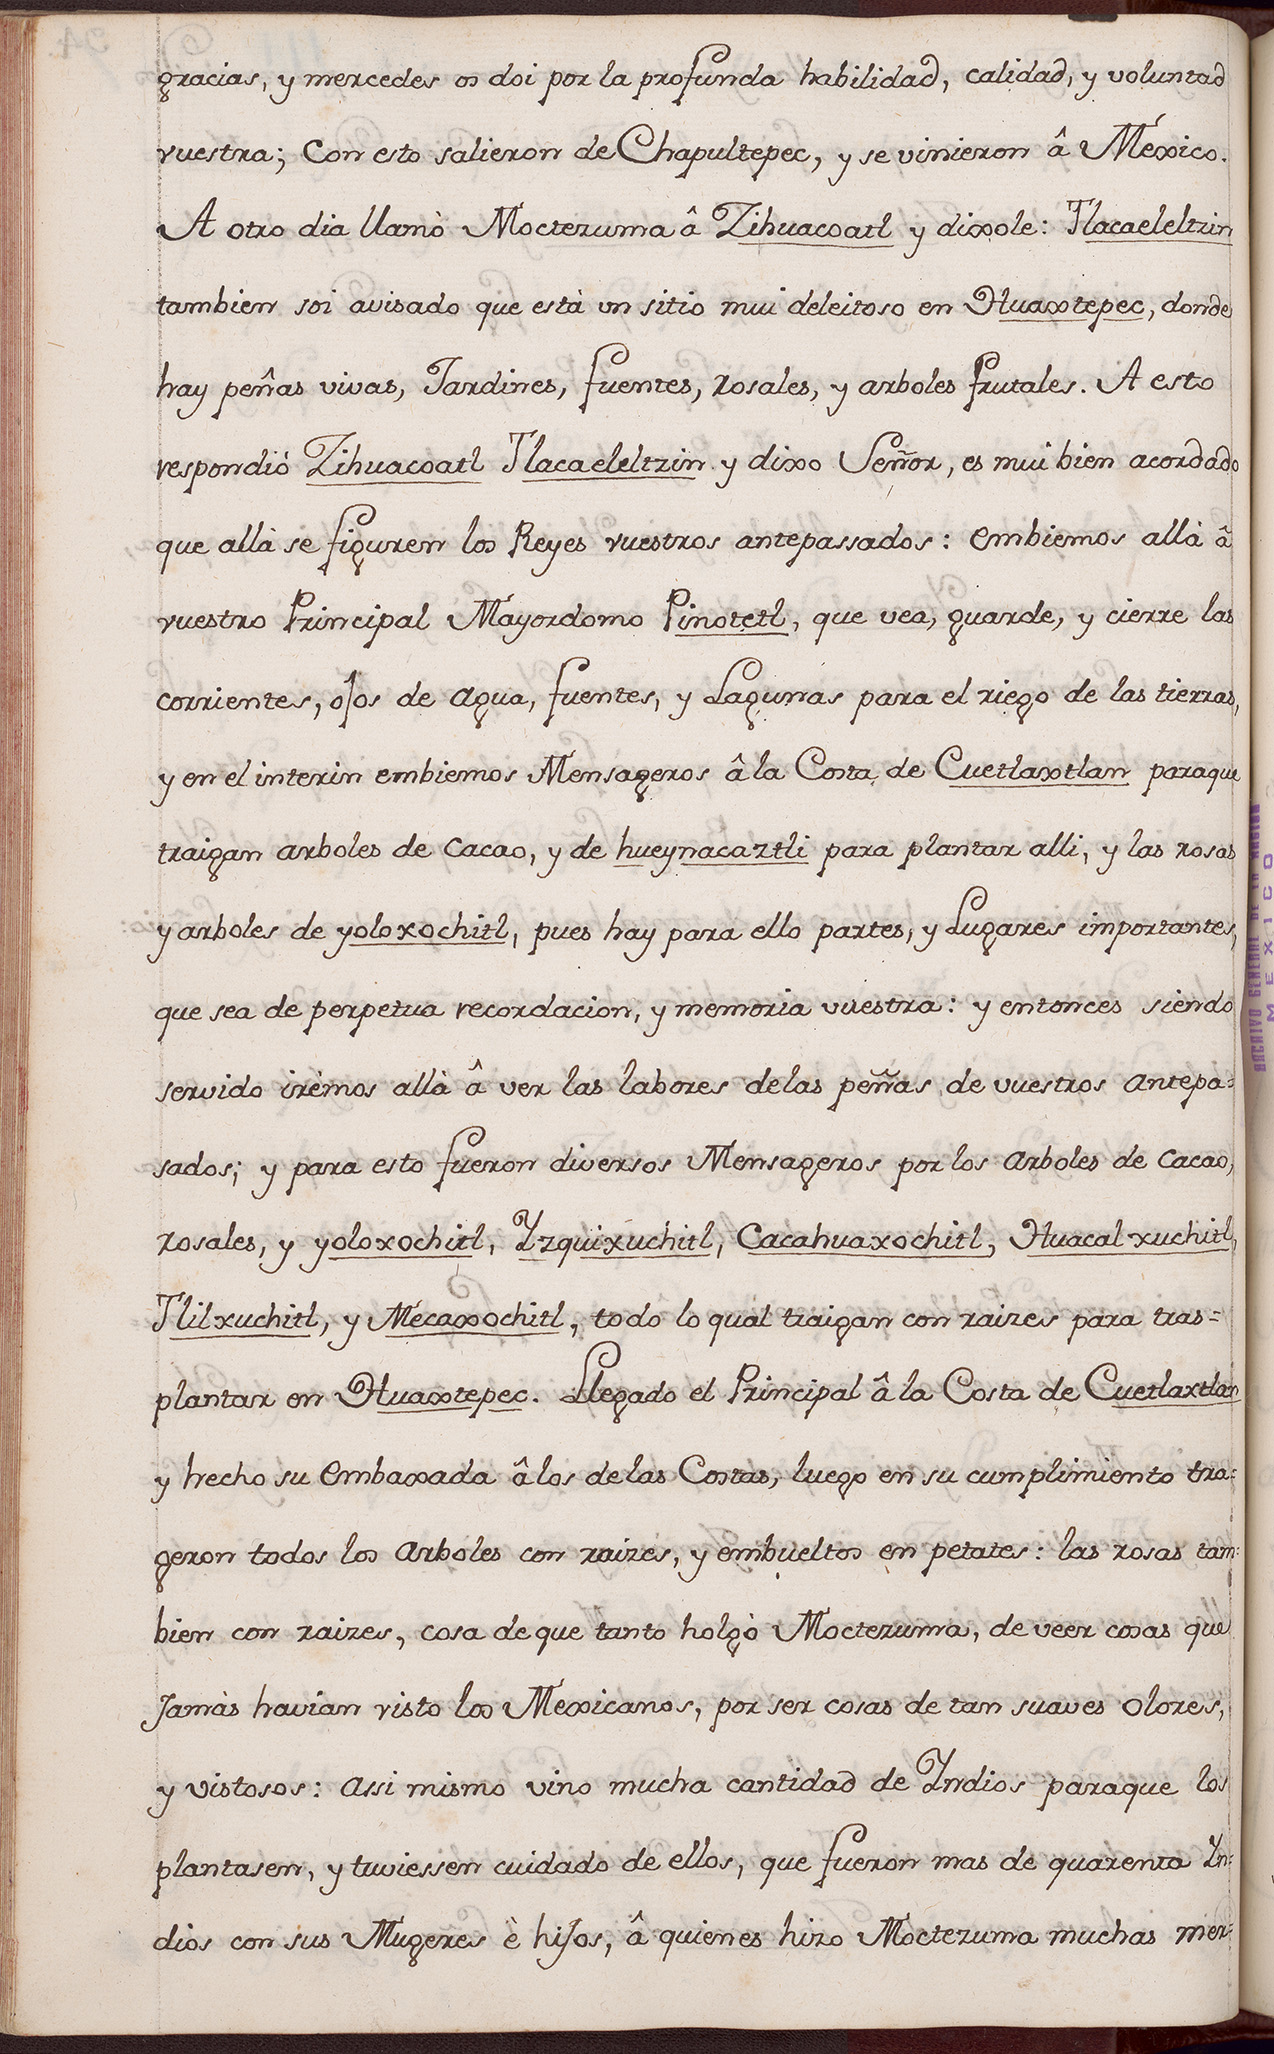 gracias, y mercedes os doi por la profunda habilidad, calidad, y voluntad
vuestra; Con esto salieron de Chapultepec, y se vinieron â México.
A otro dia llamò Moctezuma â Zihuacoatl y dixole: Tlacaeleltzin
tambien soi avisado que està un sitio mui deleitoso en Huaxtepec, donde
hay peñas vivas, Jardines, fuentes, rosales, y arboles frutales. A esto
respondió Zihuacoatl Tlacaeleltzin y dixo Señor, es mui bien acordado
que allà se figuren los Reyes vuestros antepassados: embiemos allà â
vuestro Principal Mayordomo Pinotetl, que vea, guarde, y cierre las
corrientes, ojos de agua, fuentes, y Lagunas para el riego de las tierras,
y en el interin embiemos Mensageros â la Costa de Cuetlaxtlan paraque
traigan arboles de Cacao, y de hueynacaztli para plantar alli, y las rosas
y arboles de yoloxochitl, pues hay para ello partes, y Lugares importantes,
que sea de perpetua recordacion, y memoria vuestra: y entonces siendo
servido irèmos allà â ver las labores delas peñas de vuestros antepa=
sados; y para esto fueron diversos Mensageros por los arboles de Cacao,
rosales, y yoloxochitl, Yzquixuchitl, Cacahuaxochitl, Huacalxuchitl,
Tlilxuchitl, y Mecaxochitl, todo lo qual traigan con raizes para tras=
plantar en Huaxtepec. Llegado el Principal â la Costa de Cuetlaxtlan
y hecho su embaxada â los delas Costas, luego en su cumplimiento tra=
geron todos los arboles con raizes, y embueltos en petates: las rosas tam=
bien con raizes, cosa de que tanto holgò Moctezuma, de veer cosas que
Jamàs havian visto los Mexicanos, por ser cosas de tan suaves olores,
y vistosos: assi mismo vino mucha cantidad de Yndios paraque los
plantasen, y tuviessen cuidado de ellos, que fueron mas de quarenta Yn=
dios con sus Mugeres è hijos, â quienes hizo Moctezuma muchas mer=
ARCHIVO GENERAL DE LA NACION
MEXICO